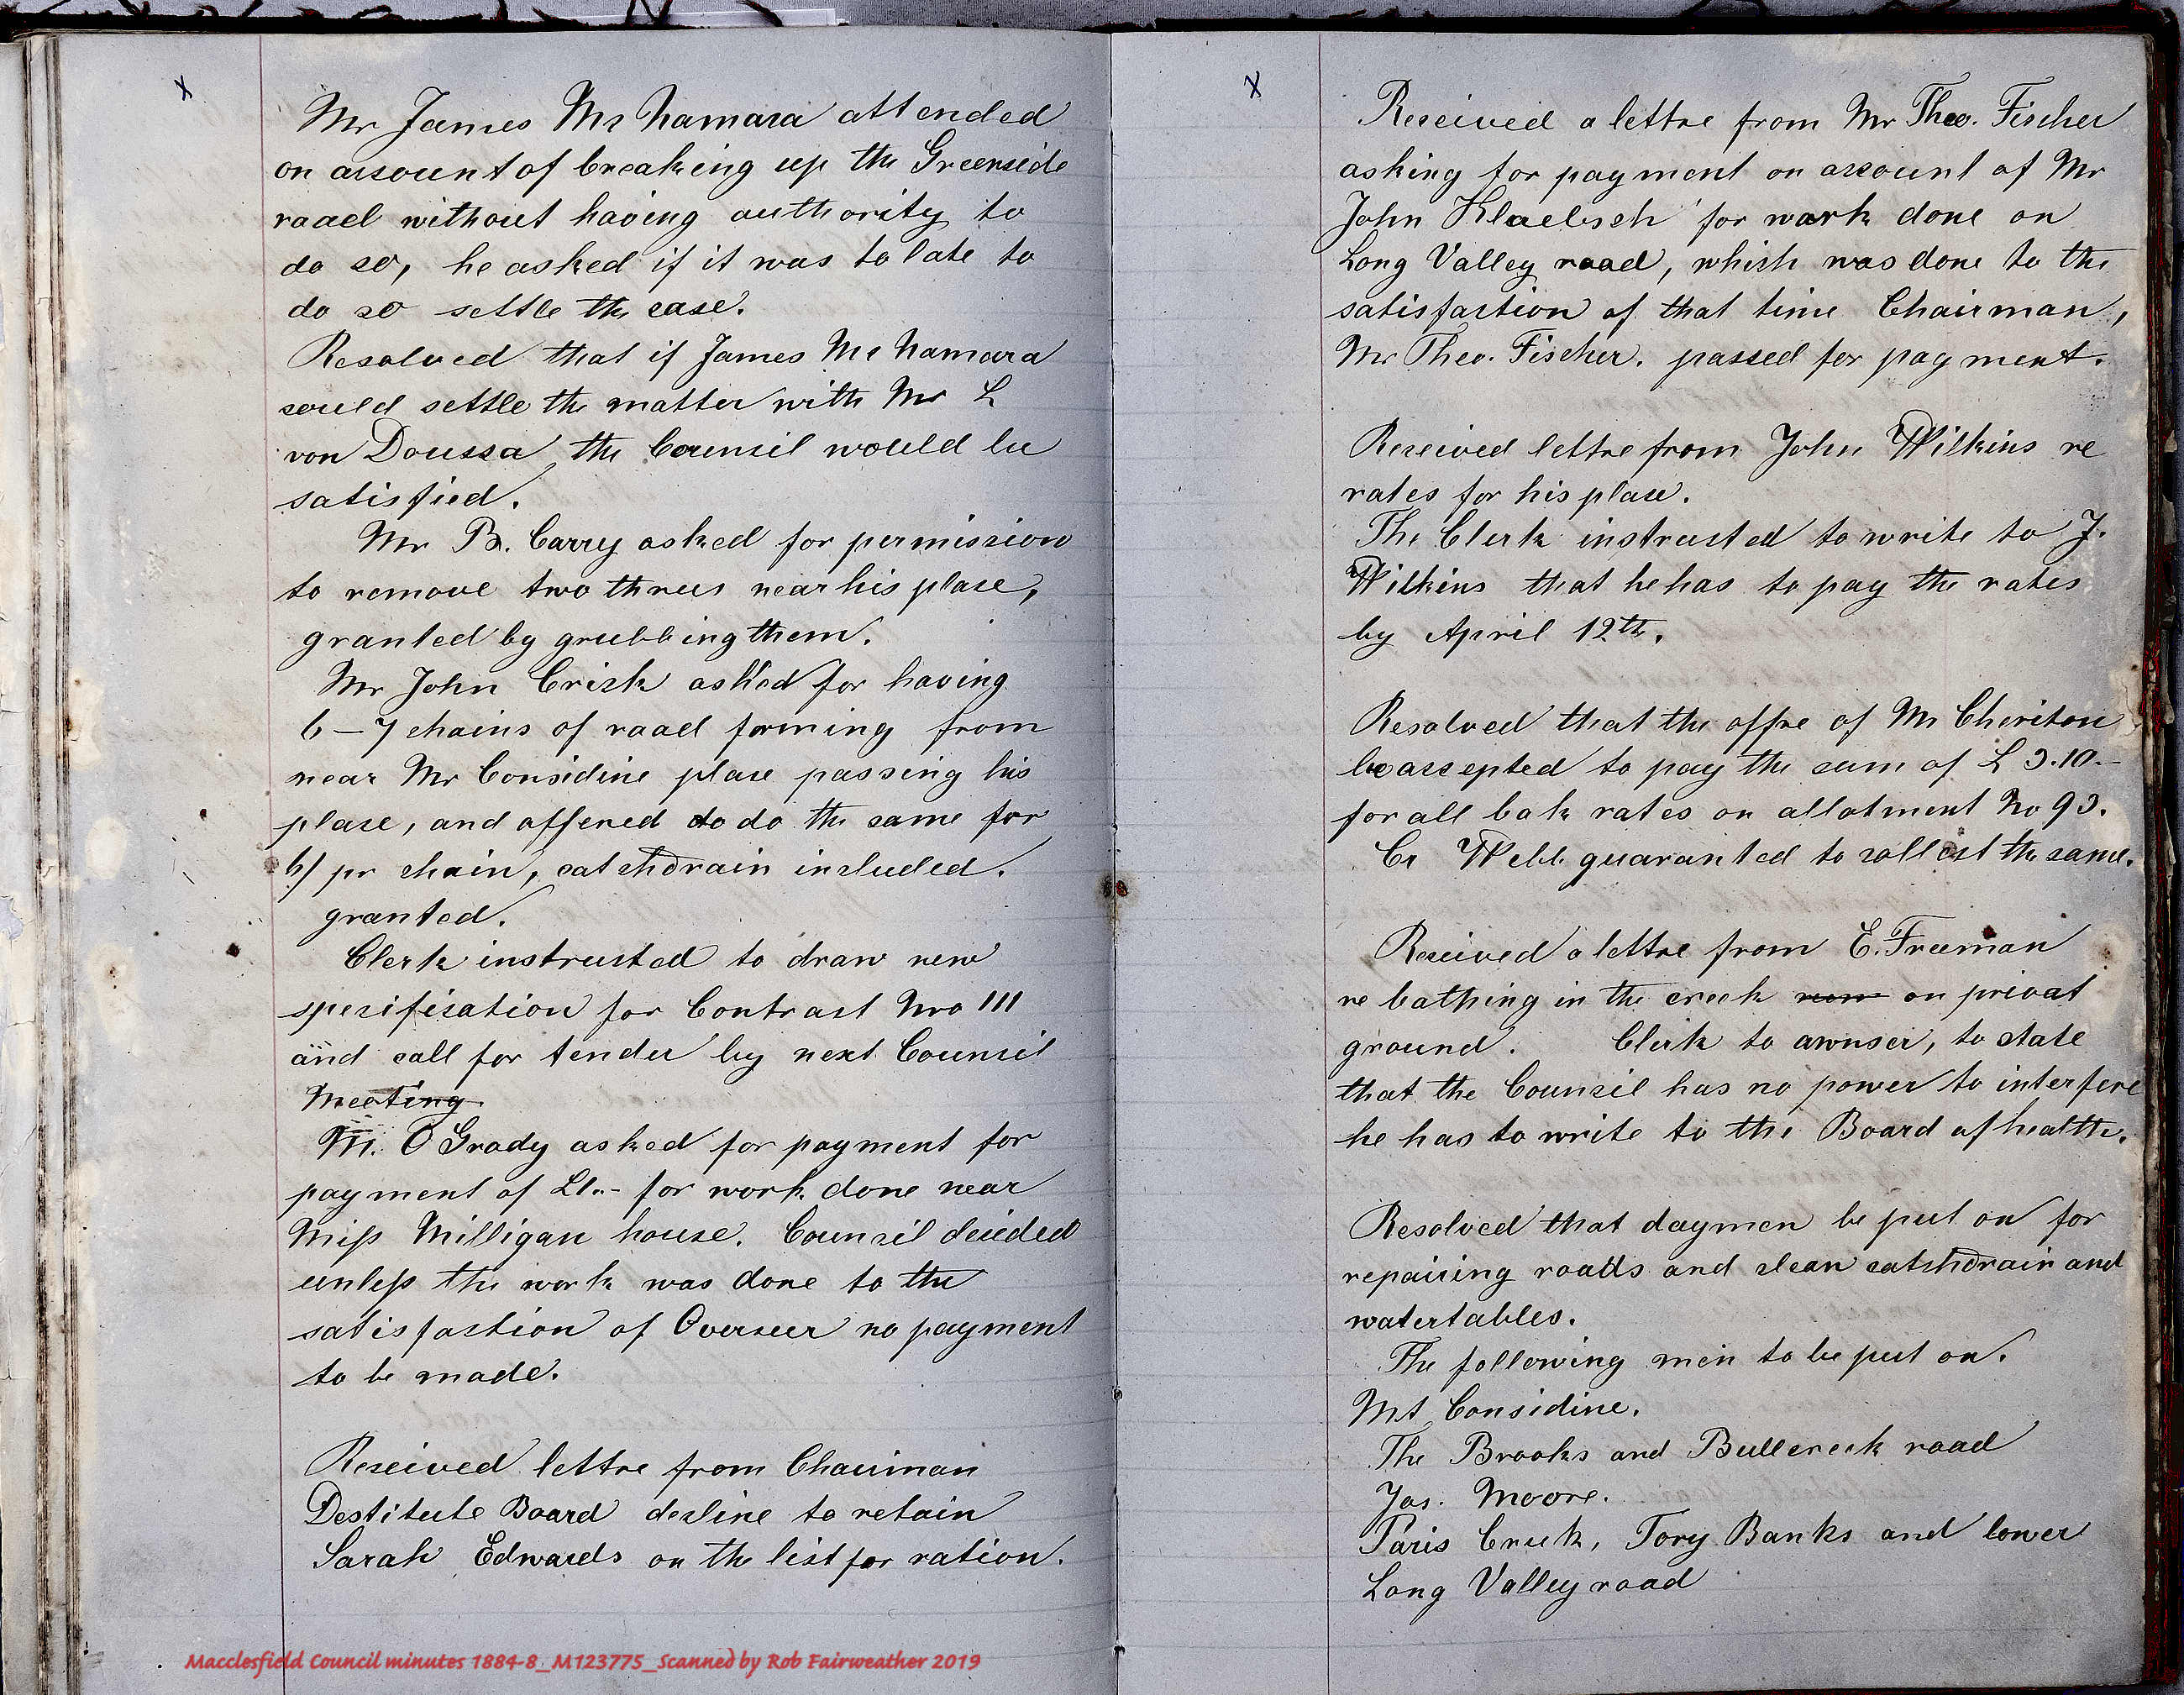 x
Mr James Mc Namara attended
on account of breaking up the Greenside
road without having authority to
do so, he asked if it was to late to
do so settle the case.
Resolved that if James Mc Namara
could settle the matter with Mr L
von Doussa the Council would be
satisfied.
Mr B. Carry asked for permission
to remove two threes near his place,
granted by grubbing them.
Mr John Crick asked for having
6-7 chains of road forming from
near Mr Considine place passing his
place, and offered to do the same for
6/ pr chain, catchdrain included.
granted.
Clerk instructed to draw new
specification for Contract Nro 111
and call for tender by next Council
Meeting
M. O Grady asked for payment for
payment of £1.- for work done near
Miss Milligan house. Council decided
unless the work was done to the
satisfaction of Overseer no payment
to be made.
Received lettre from Chairman
Destitute Board decline to retain
Sarah Edwards on the list for ration.
x
Received a lettre from Mr Theo. Fischer
asking for payment on account of Mr
John Klaebsch for work done on
Long Valley road, which was done to the
satisfaction of that time Chairman,
Mr Theo. Fischer. passed for payment.
Received lettre from John Wilkins re
rates for his place.
The Clerk instructed to write to J.
Wilkins that he has to pay the rates
by April 12th.
Resolved that the offre of Mr Cheriton
be accepted to pay the sum of £ 3.10.-
for all bak rates on allotment No 93.
Cr Webb guaranted to collect the same.
Received a lettre from E. Freeman
re bathing in the creek on privat
ground. Clerk to awnser, to state
that the Council has no power to interfere
he has to write to the Board of health.
Resolved that daymen be put on for
repairing roads and clean catchdrain and
watertables.
The following men to be put on.
Mt Considine.
The Brooks and Bullcreek road
Jas. Moore.
Paris Creek, Tory Banks and lower
Long Valley road
Macclesfield Council minutes 1884-8_M123775_Scanned by Rob Fairweather 2019